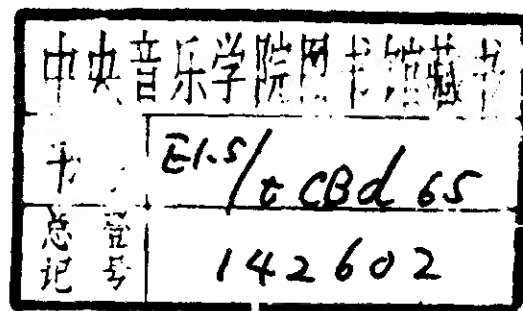 中央音乐学院图书馆藏书
书号 E1.5/t CBd 65
总登记号 142602